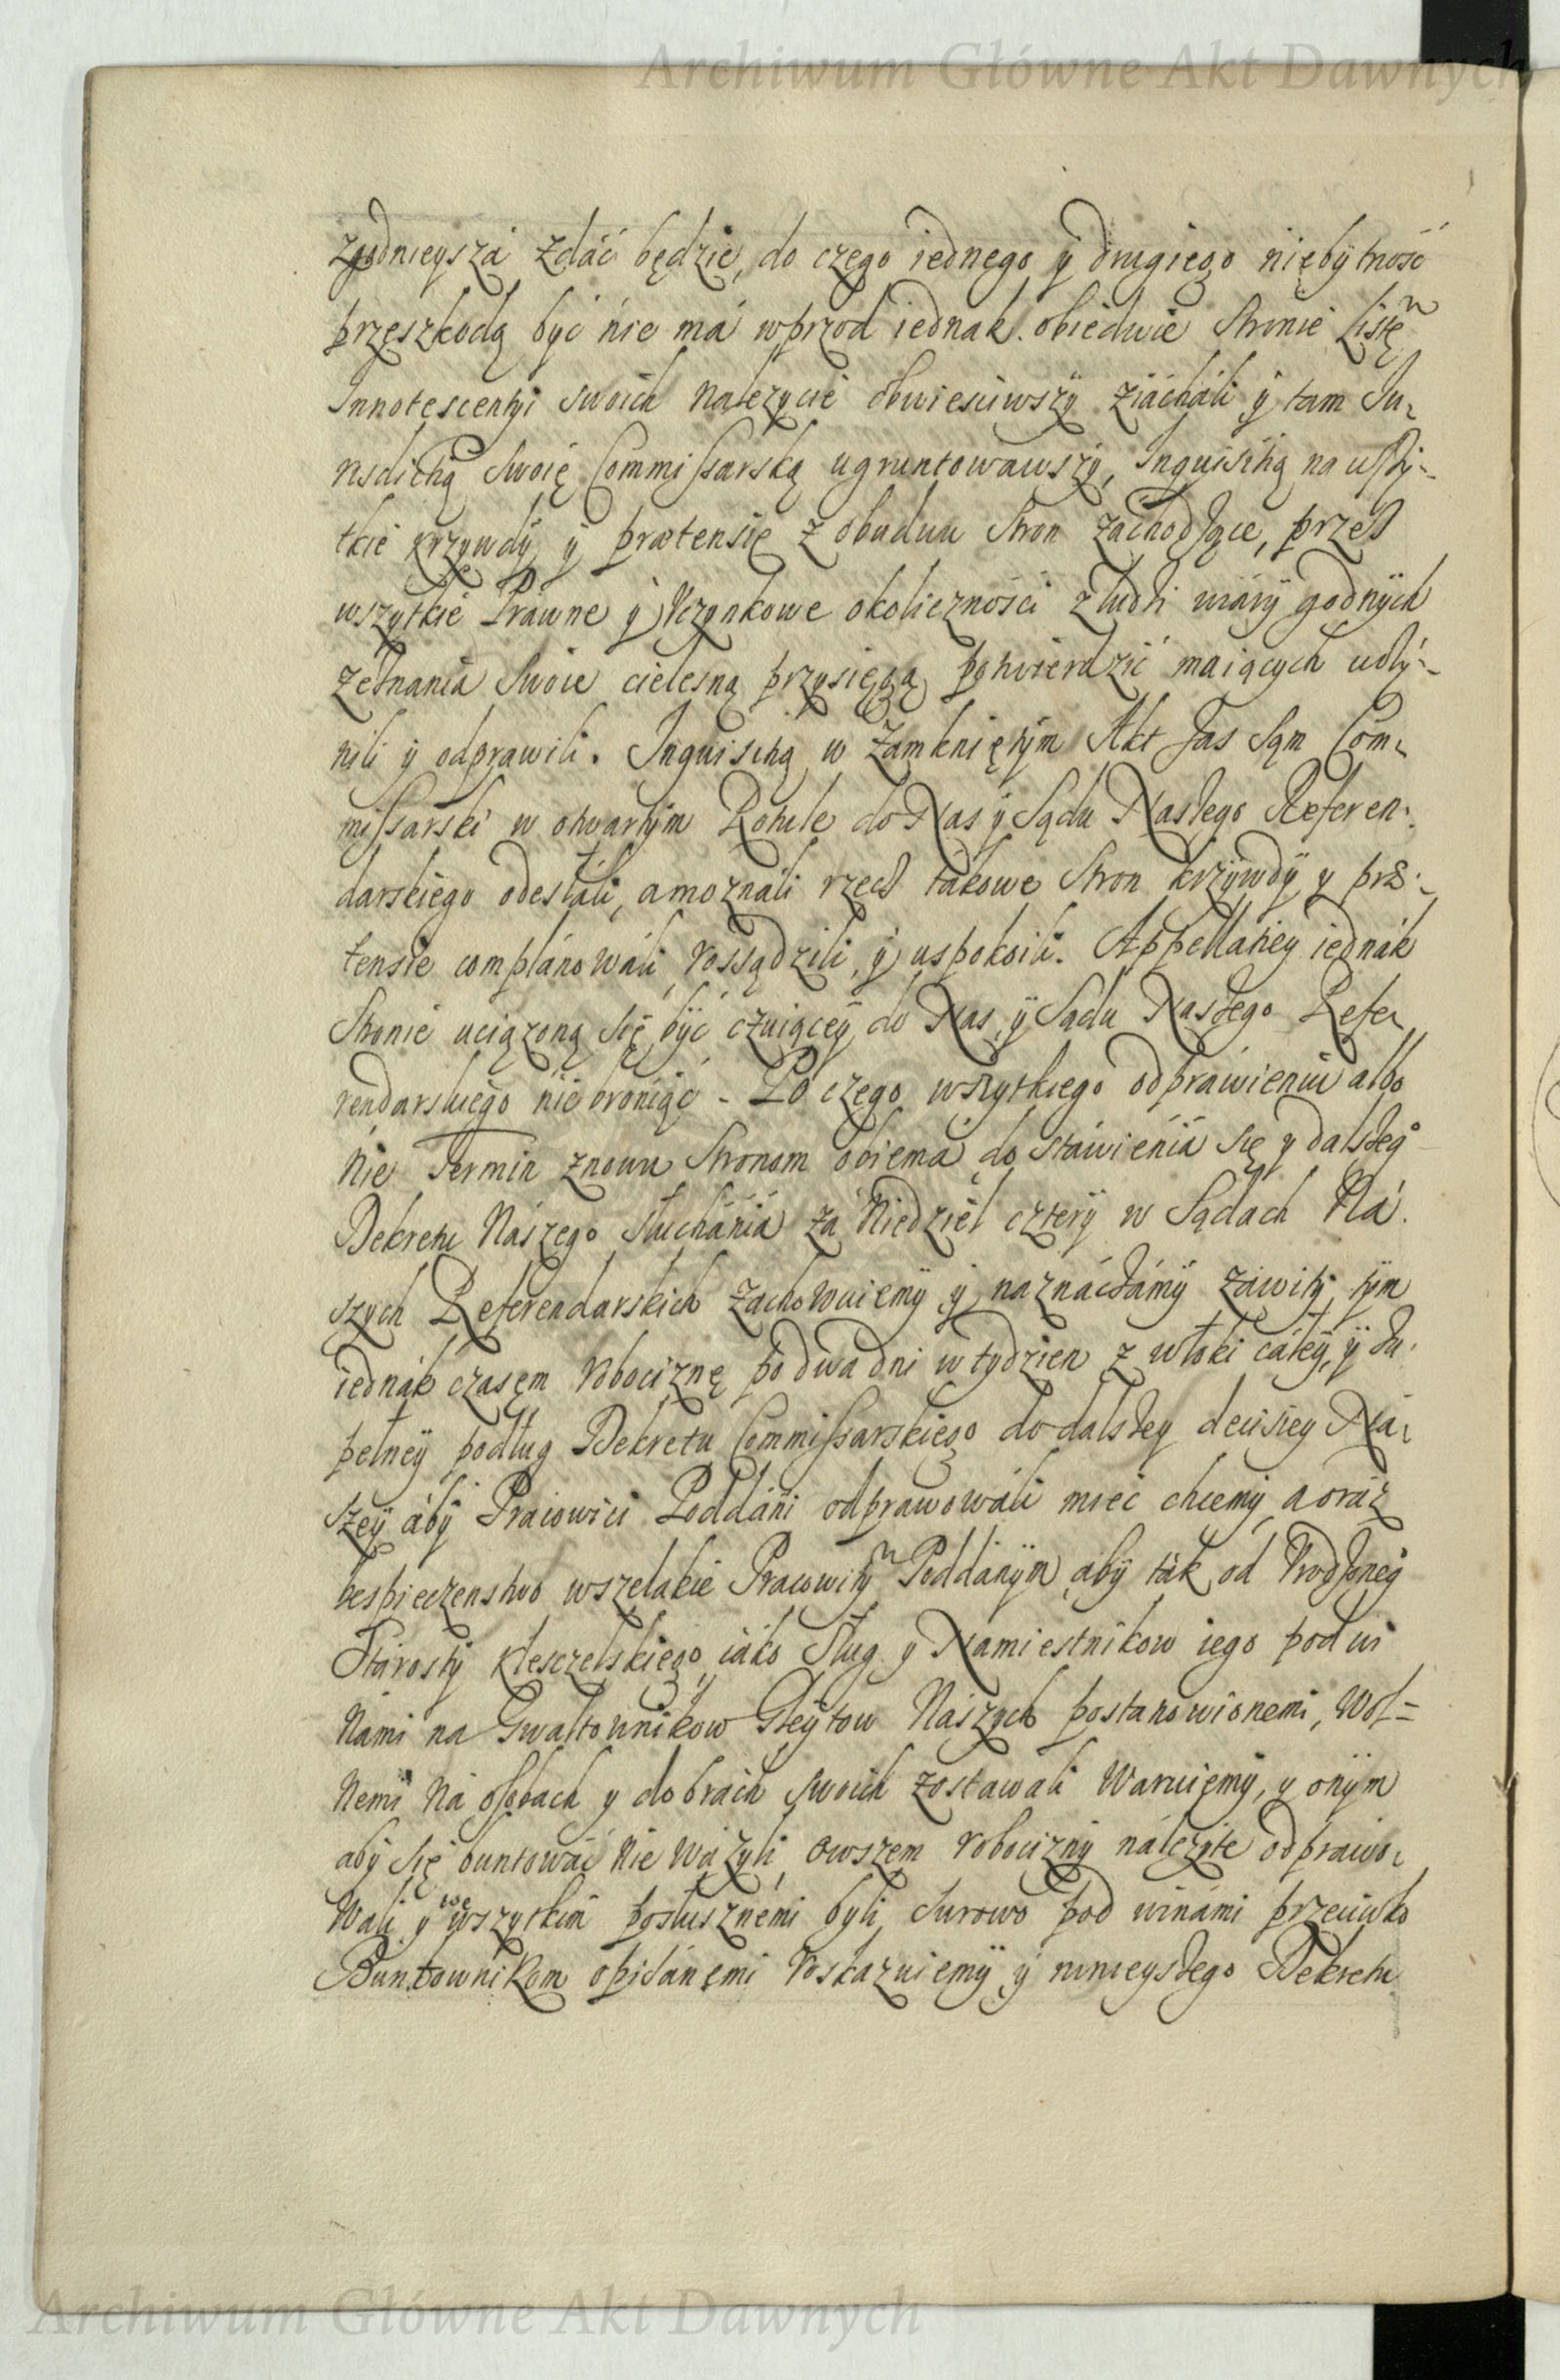 Archiwum Główne Akt Dawnych
zgodnieysza zdáć będzie, do czego iednego y drugiego niębytność
przęszkodą być nie má wprzod iednak obiedwie Stronie Listę
Innotescentyi swoich należycie obwiesciwszy ziácháli y tam Ju-
risdictią Swoię Commissarską ugruntowawszy, Inquisitią na wszy-
tkie krzywdy y prætensię z obudwu Stron zachodzące, przez
wszytkie Prawne y Uczynkowe okoliczności z ludzi wiáry godnych
zeznania Swoie cielesną przysięgą potwierdzić maiących uczy-
nili y odprawili. Inquisitią w zamkniętym Akt zas Sąm Com-
missarski w otwartym Rotule do Nas y Sądu Naszego Referen-
darskiego odesłáli, a moznali rzecz tákowe Stron krzywdy y præ-
tensie complánowáli, rossądzili, y uspokoili. Appellatiey iednák
Stronie uciązoną się być czuiącey do Nas y Sądu Naszego Refe-
rendarskiego nie broniąc - Po czego wszytkiego odpráwieniu albo
nie Termin znowu Stronom obiema do stáwienia się y dalszego
Dekretu Nászego słuchánia zá Niedziel cztery w Sądach Ná-
szych Referendarskich zachowuiemy y naznáczámy zawity, tym
iednák czasęm robociznę po dwa dni w tydzien z włoki cáłey, y zu-
pełney podług Dekretu Commissarskiego do dalszey decisiey Ná-
szey áby Pracowici Poddáni odprawowáli mieć chcemy, a oráz
bespieczenstwo wszelakie Pracowitym Poddánym aby ták od Urodzonego
Stárosty Kleszczelskiego iáko Sług y Namiestnikow iego pod wi
nami na Gwałtownikow Gleytow Nászych postanowionemi, wol-
nemi ná osobach y dobrach swoich zostawali Waruięmy, y onym
aby się buntowác nie ważyli, owszem robocizny náleżyte odprawo-
wali y we wszytkim posłusznémi byli, Surowo pod winámi przeciwko
Buntownikom opisánęmi roskazuiemy y ninieyszego Dekretu
Archiwum Główne Akt Dawnych